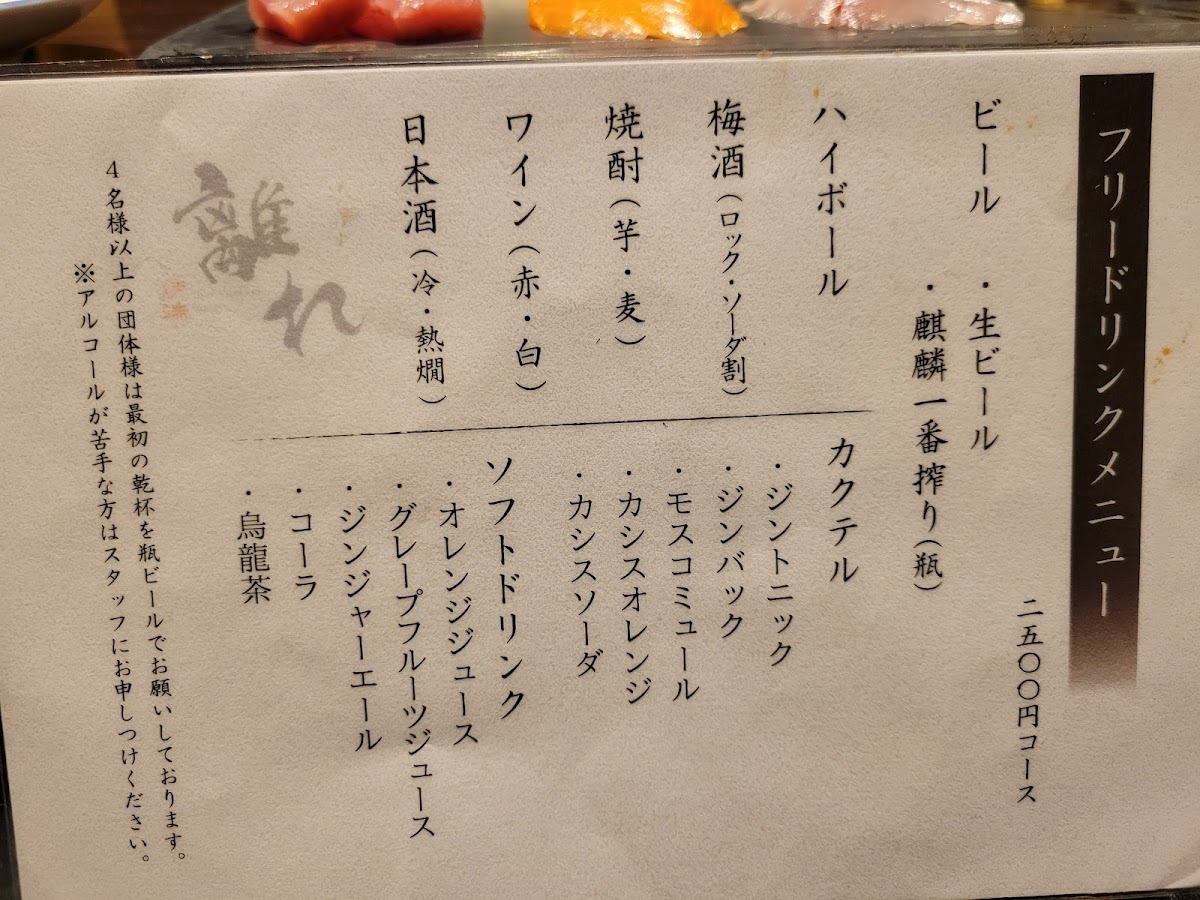 フリードリンクメニュー
二五〇〇円コース
ビール ・生ビール
・麒麟一番搾り（瓶）
ハイボール
梅酒（ロック・ソーダ割）
焼酎（芋・麦）
ワイン（赤・白）
日本酒（冷・熱燗）
カクテル
・ジントニック
・ジンバック
・モスコミュール
・カシスオレンジ
・カシスソーダ
ソフトドリンク
・オレンジジュース
・グレープフルーツジュース
・ジンジャーエール
・コーラ
・烏龍茶
離れ
4名様以上の団体様は最初の乾杯を瓶ビールでお願いしております。
※アルコールが苦手な方はスタッフにお申しつけください。